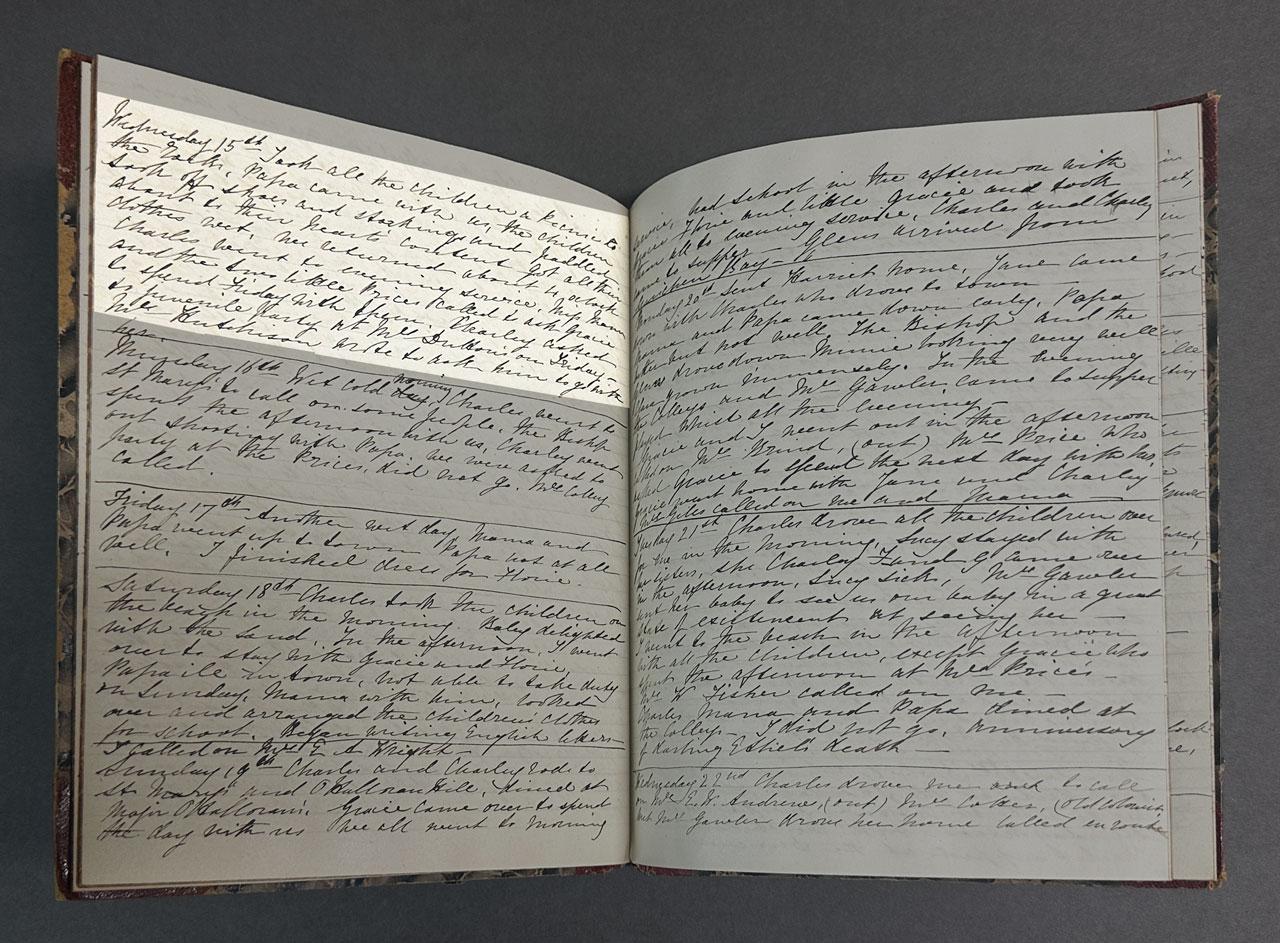 Wednesday 15th Took all the children a picnic to
the rocks, Papa came with us, the children
took off shoes and stockings and paddled
about to their hearts content got all their
clothes wet. We returned about 4 o'clock
Charles went to evening service. Mrs Mann
and the two little Prices called to ask Gracie
to spend Friday with them. Charley asked
to juvenile party at Mrs Duttons on Friday,
Mrs Hutchison wrote to ask him to go with
her.
Thursday 16th Wet cold day morning, Charles went to
St Marys to call on some people, the Bishop
spent the afternoon with us, Charley went
out shooting with Papa. We were asked to
party at the Prices, did not go. Mrs Colley
called.
Friday 17th Another wet day, Mama and
Papa went up to town Papa not at all
well. I finished dress for Florie.
Saturday 18th Charles took the children on
the beach in the morning. Baby delighted
with the sand. In the afternoon, I went
over to stay with Gracie and Florie,
Papa ill in town, not able to take duty
on Sunday, Mama with him, looked
over and arranged the childrens clothes
for school. Began writing English letters
I called on Mrs E. A. Wright
Sunday 19th Charles and Charley rode to
St Marys and O'Halloran Hill, dined at
Major O'Hallorans. Gracie came over to spend
the day with us We all went to morning
service, had school in the afternoon with
Florie and little Gracie and took
them all to evening service, Charles and Charley
and to supper
Bay - Glens arrived from
Monday 20th Sent Harriet home, Jane came
with Charles who drove to town
Mama and Papa came down early, Papa
but not well. The Bishop and the
drove down Minnie looking very well
grown immensely. In the evening
the Colleys and Mrs Gawler came to supper
played Whist all the evening
and I went out in the afternoon
on Mrs Wund, (out) Mrs Price who
asked Gracie to spend the next day with her,
went home with Jane and Charley
Mrs Giles called on me and Mama
Tuesday 21st Charles drove all the children over
to me in the morning, Lucy stayed with
her sisters, she Charley F and G came over
in the afternoon, Lucy sick, Mrs Gawler
sent her baby to see us our baby in a great
state of excitement at seeing her
I went to the beach in the afternoon
with all the children, except Gracie who
spent the afternoon at Mrs Prices -
Mrs H Fisher called on me -
Charles Mama and Papa dined at
the Colleys - I did not go, anniversary
of darling Esthers death
Wednesday 22nd Charles drove me out to call
on Mrs E. W. Andrews, (out) Mrs Coker, (old Colonist,
met Mrs Gawler drove her home called en route